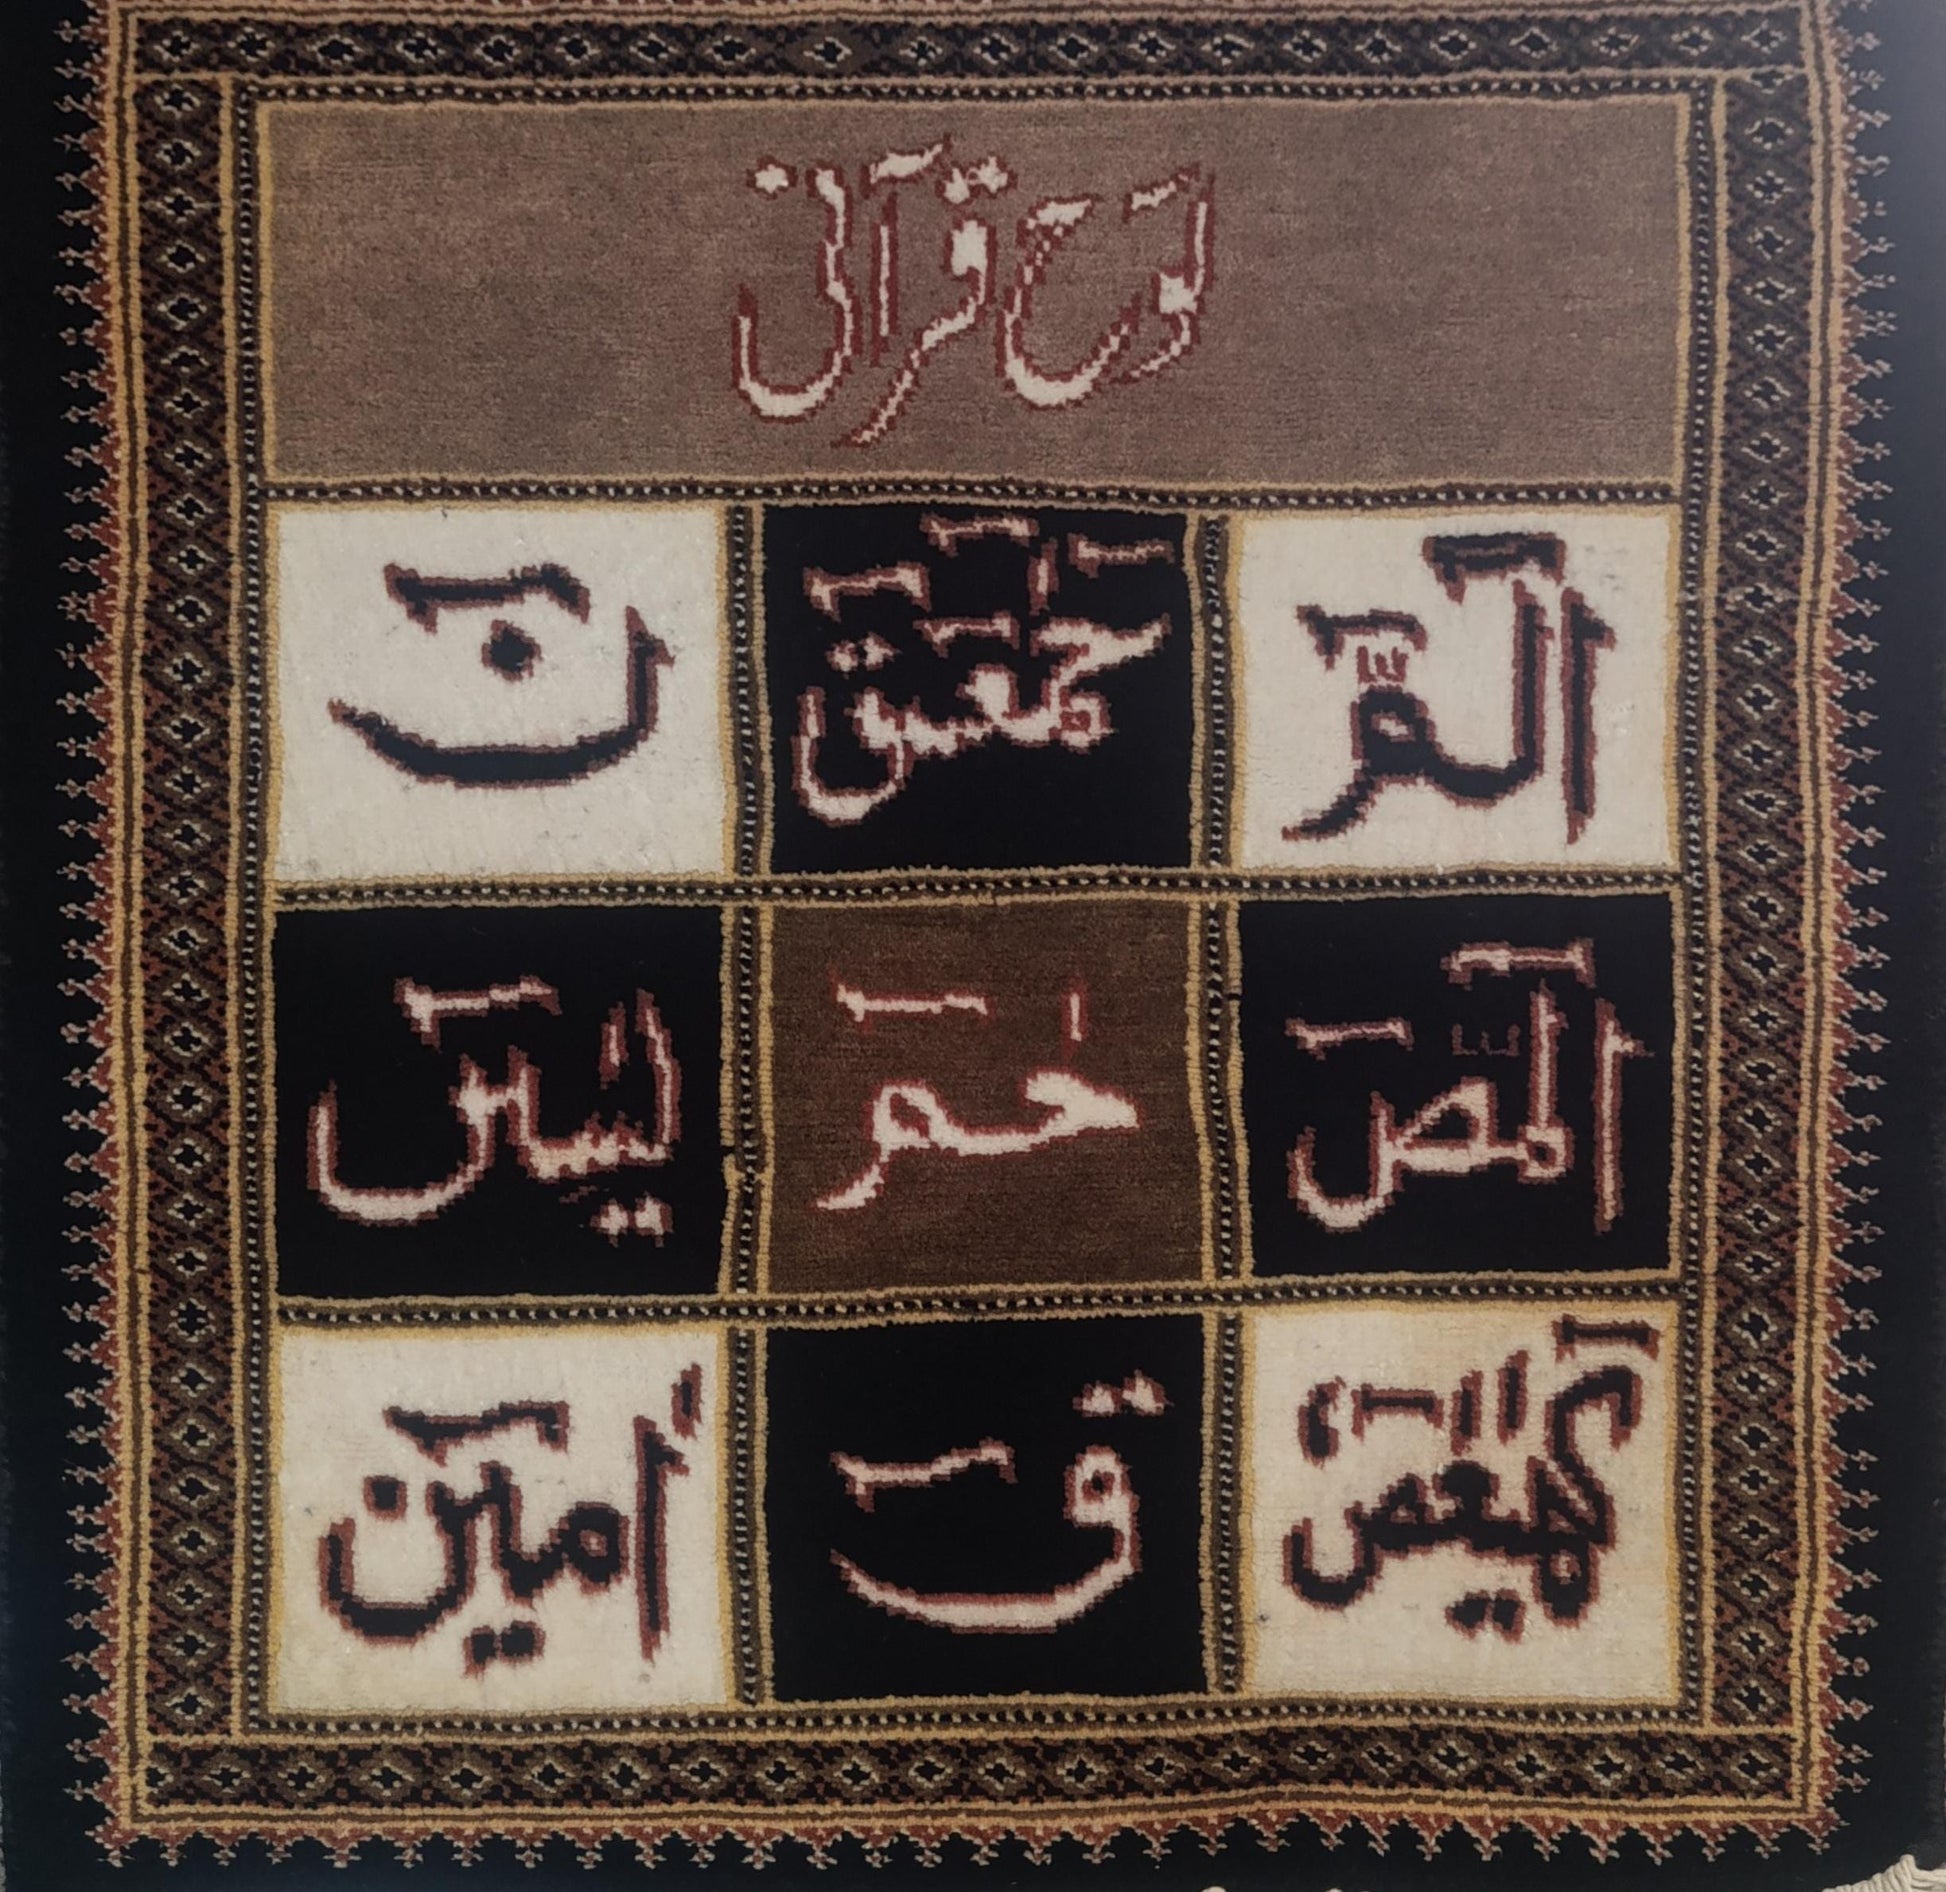 لوح قرآنی
الٓمّٓرٰ حٰمٓ عٓسٓقٓ نٓ
الٓمّٓصٓ حٰمٓ يٰسٓ
كٓهٰيٰعٓصٓ قٓ أمين